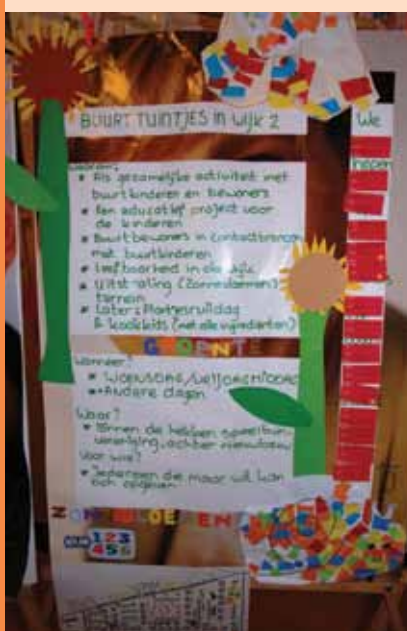 BUURT TUINTJES in wijk 2
We
hopen
Waarom?
* Als gezamelijke activiteit met
buurtkinderen en bewoners
* Een educatief project voor
de kinderen
* Buurtbewoners in contact
met buurtkinderen
* Leefbaarheid in de wijk
* Uitstraling (Zonnebloemen)
terrein
* Later:
& kookkids (met alle
GROENTE
Wanneer?
* WOENSDAG/
* Andere dagen
Waar?
* Binnen de hekken speeltuin
vereniging, achter
Voor wie?
* Iedereen die maar wil kan
zich opgeven
ZONNEBLOEMEN
123
456